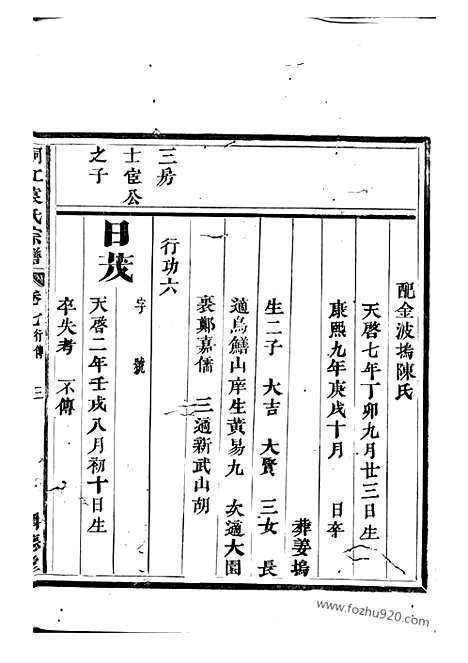 配金波塢陳氏
天啓七年丁卯九月廿三日生
康熙九年庚戌十月 日卒
葬姜塢
生二子 大吉 大賢 三女 長
適烏鱔山庠生黃易九 次適大園
裘鄭嘉儒 三適新武山胡
行功六
三房
士宦公
之子
日茂
字 號
天啓二年壬戌八月初十日生
卒失考 不傳
江袁氏宗譜
卷七行傳
三
www.fozhu920.com